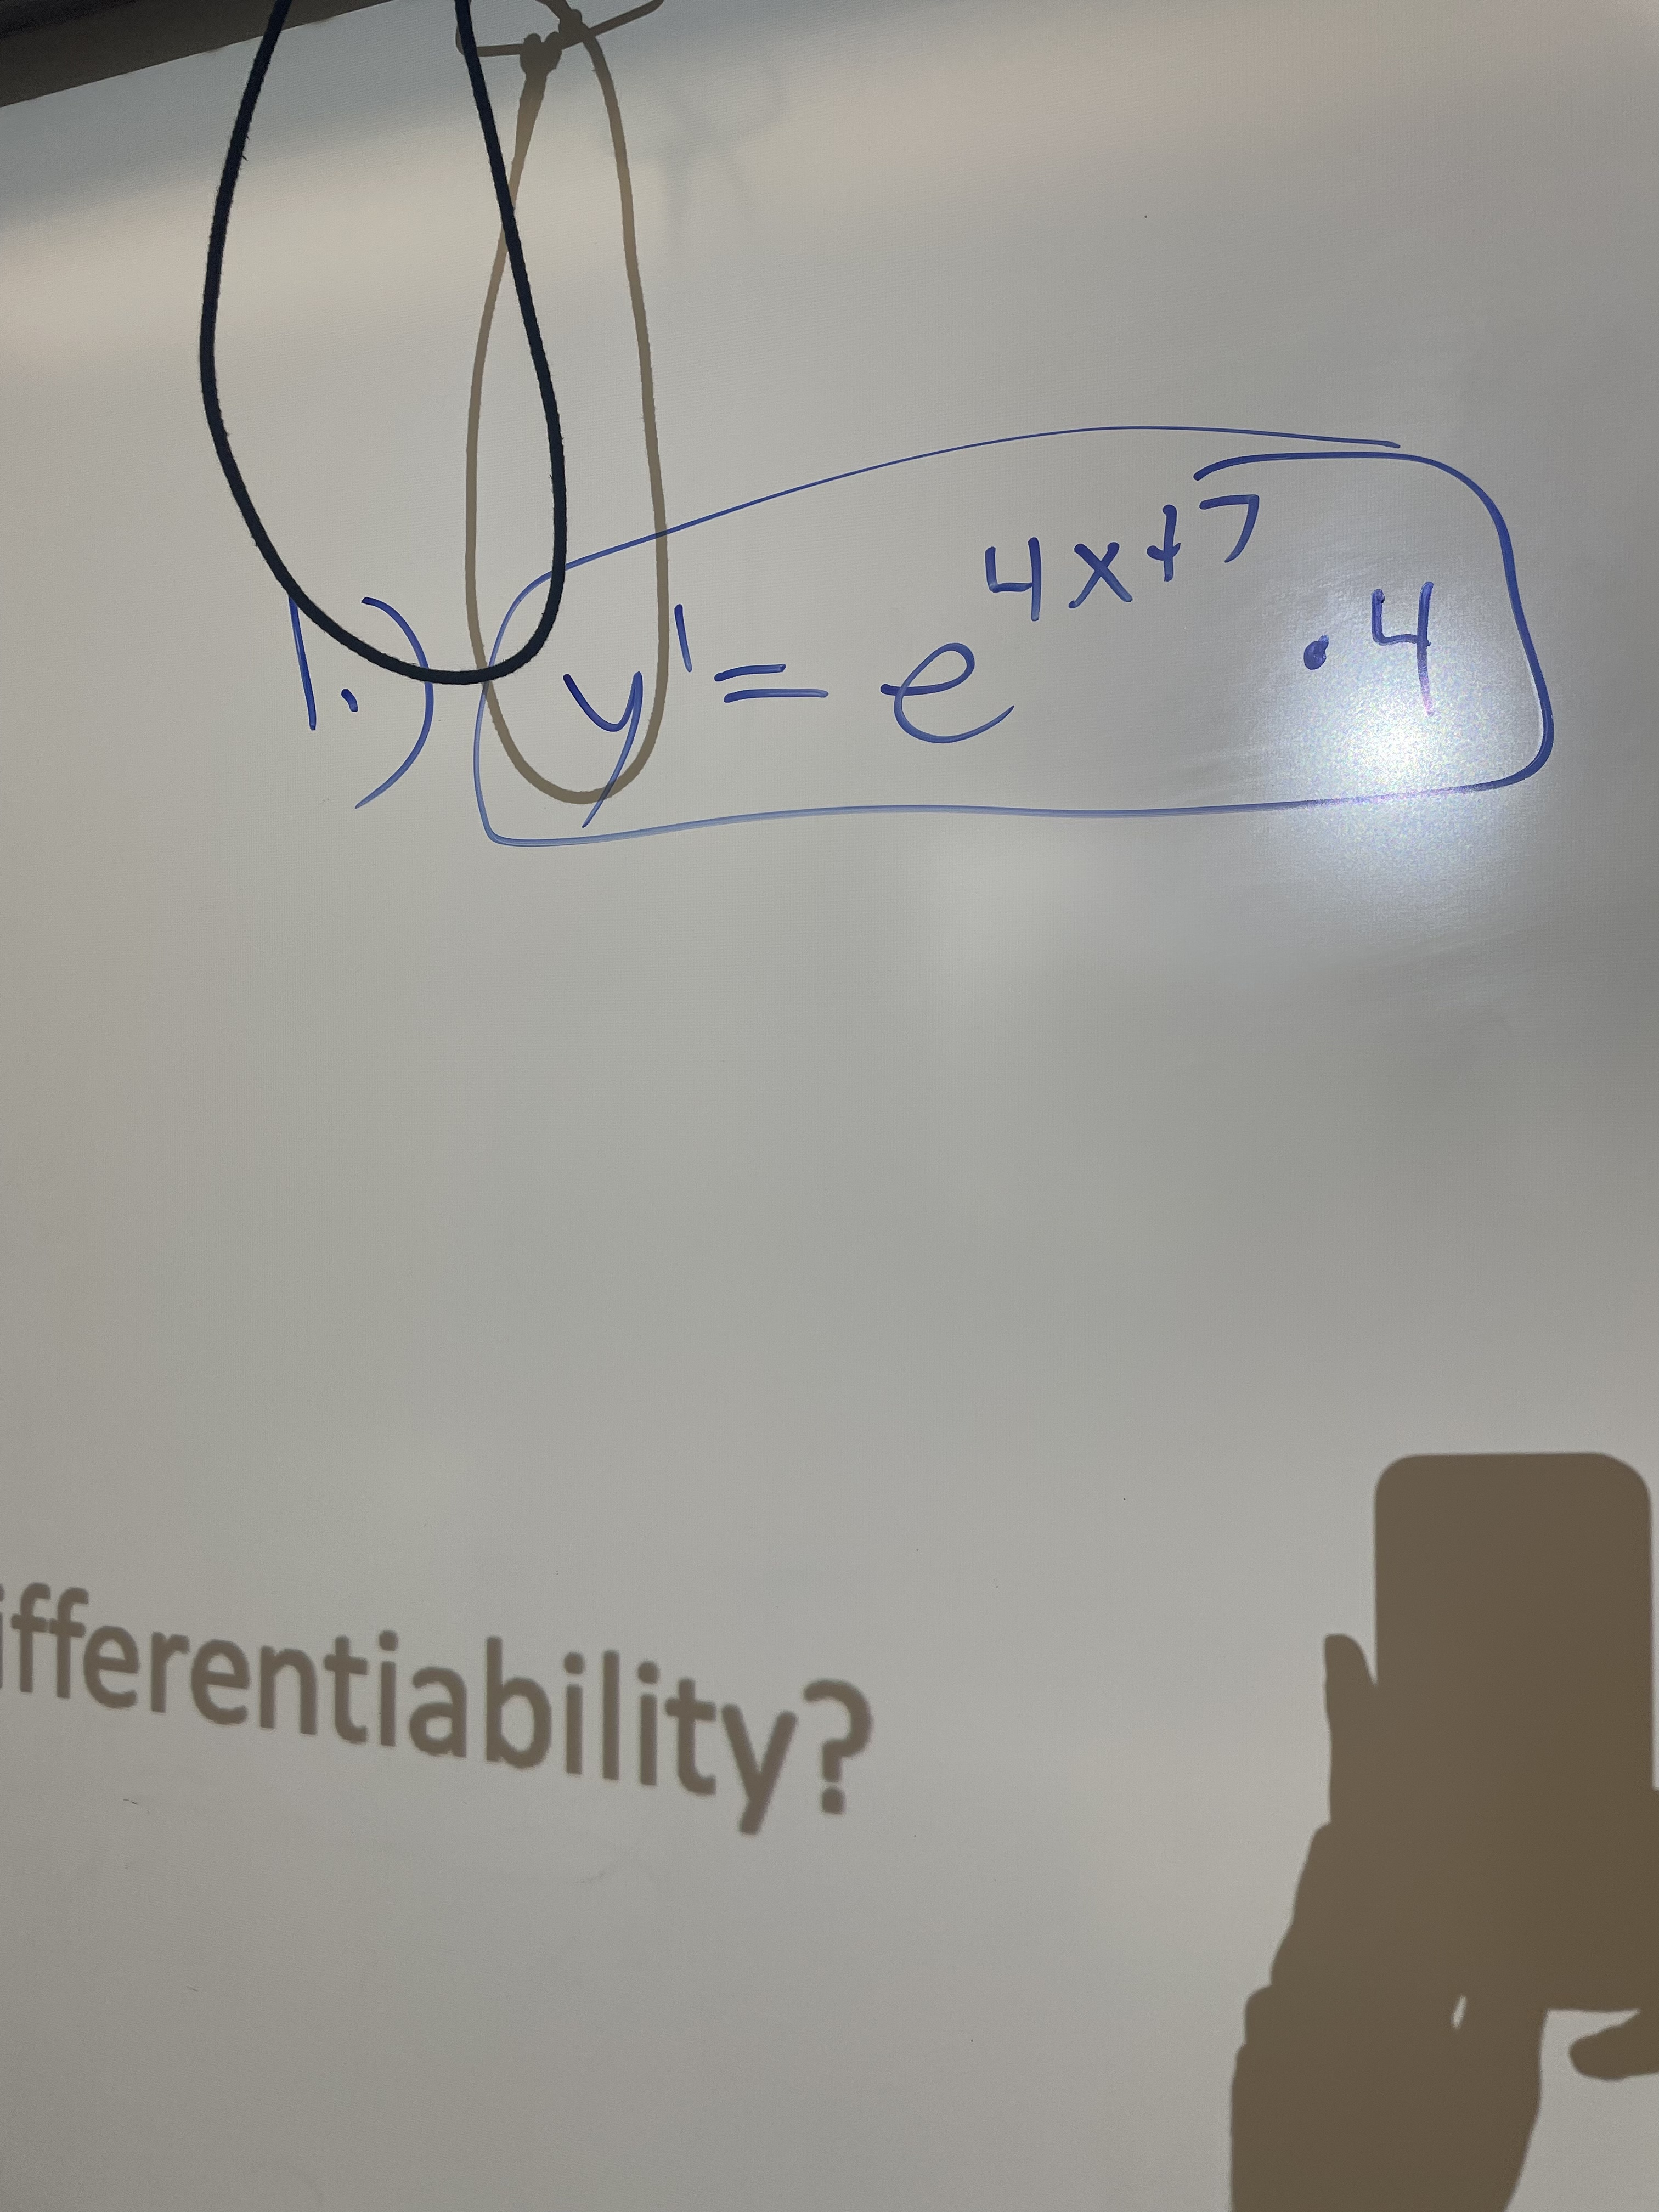 1.) y' = e^{4x+7} · 4
ifferentiability?